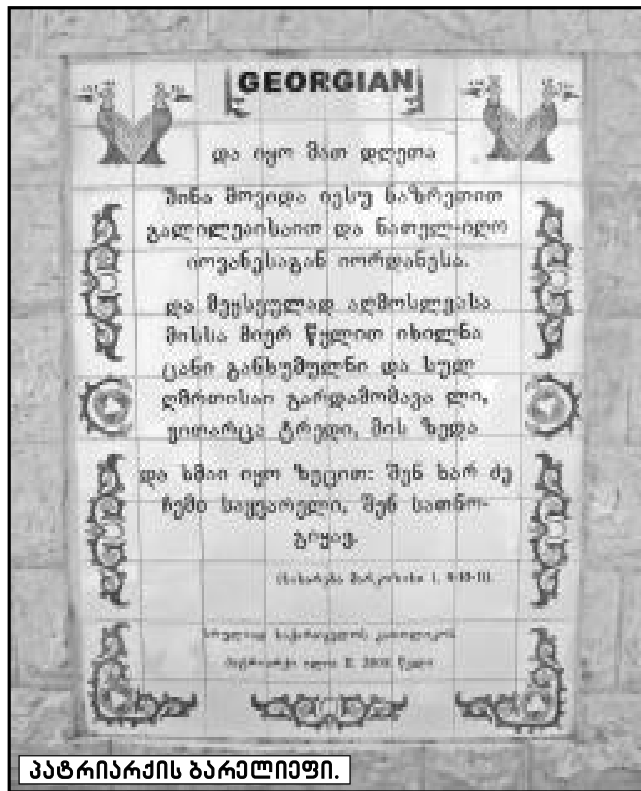 GEORGIAN
და იყო მათ დღეთა
შინა მოვიდა იესუ ნაზრეთით
გალილეაისაით და ნათელ-იღო
იოვანესაგან იორდანესა.
და მეყსეულად აღმოსლვასა
მისსა მიერ წყლით იხილნა
ცანი განხუმულნი და სულ
ღმრთისაი გარდამომავა ლი,
ვითარცა ტრედი, მის ზედა
და ხმაი იყო ზეცით: შენ ხარ ძე
ჩემი საყვარელი, შენ სათნო-
გიყავ.
(სახარება მარკოზისა 1, 9-10-11).
სრულიად საქართველოს კათოლიკოს
პატრიარქი ილია II. წელი
პატრიარქის ბარელიეფი.